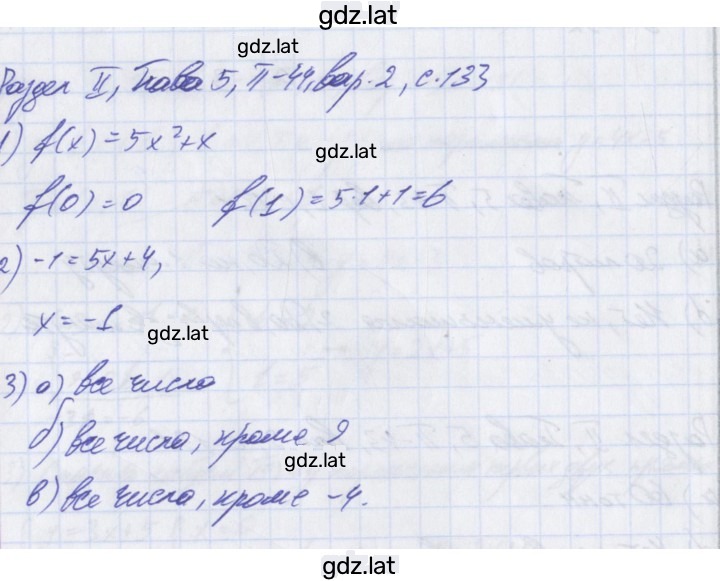 gdz.lat
gdz.lat
Раздел II, Глава 5, П-44, вар. 2, с. 133
1) f(x) = 5x² + x
gdz.lat
f(0) = 0 f(1) = 5·1+1=6
2) -1 = 5x + 4,
x = -1
gdz.lat
3) а) все числа
б) все числа, кроме 9
gdz.lat
в) все числа, кроме -4.
gdz.lat